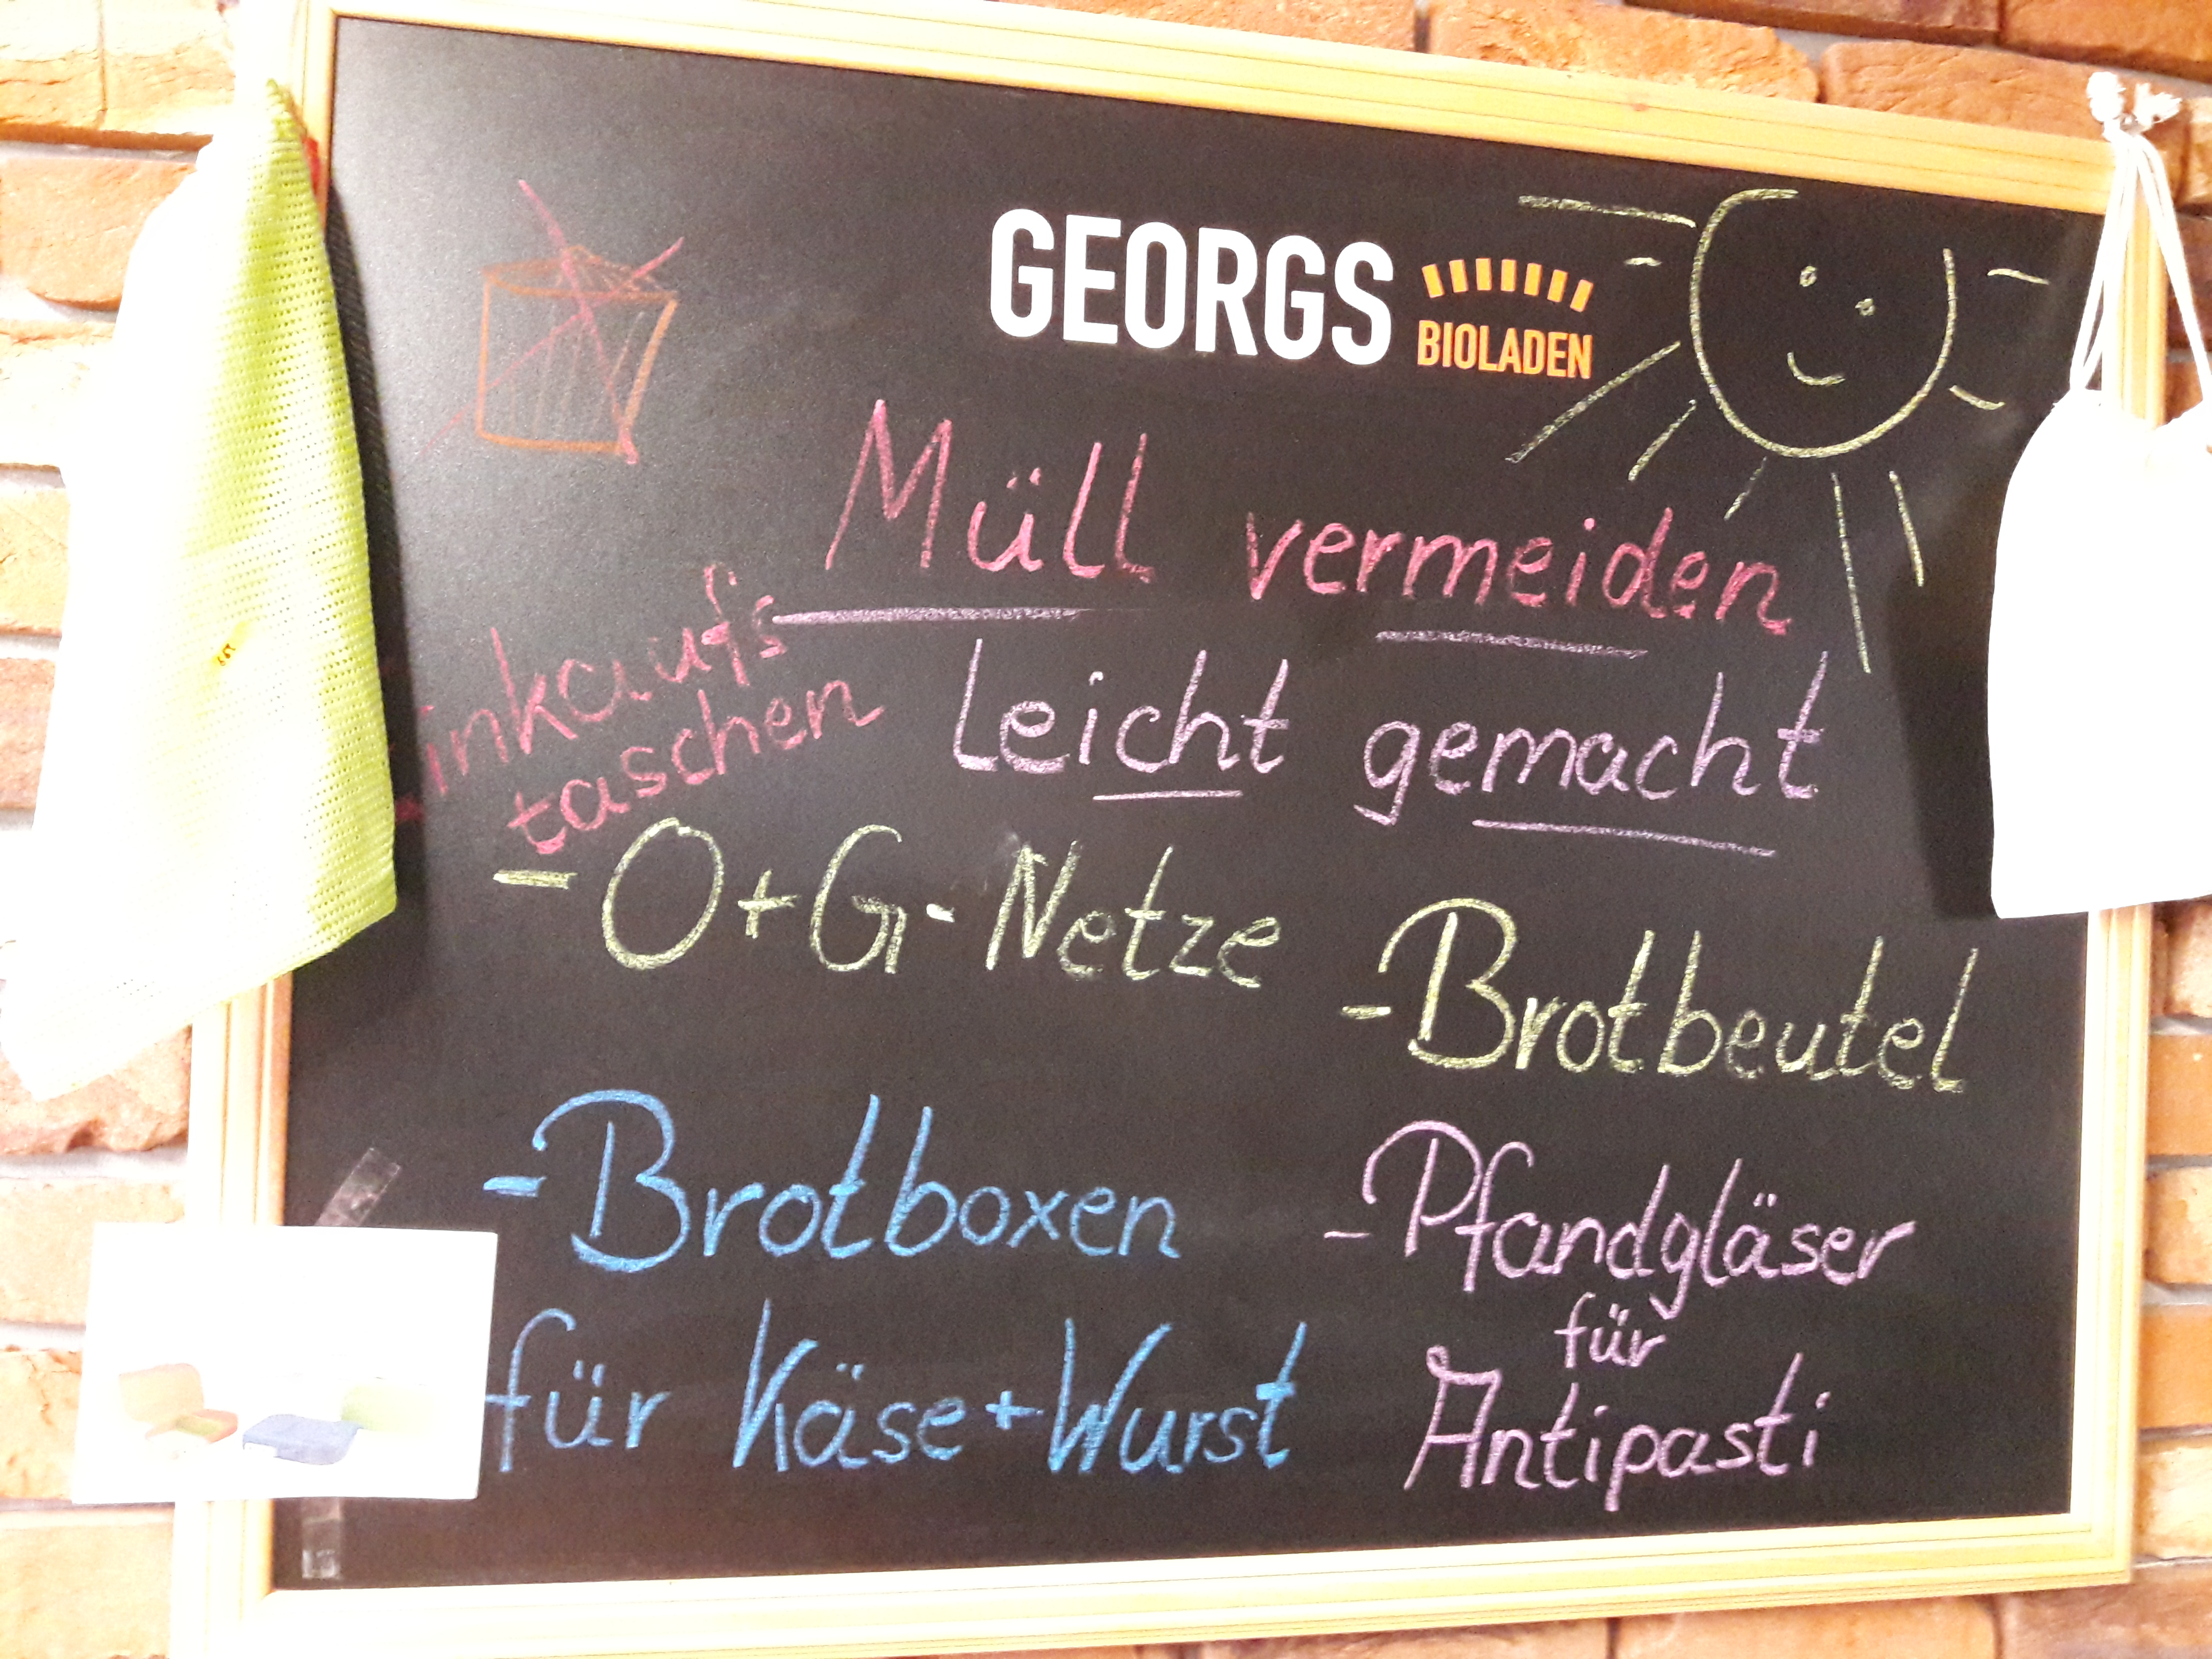 GEORGS BIOLADEN
Müll vermeiden
leicht gemacht
inkaufs
taschen
- O+G-Netze
- Brotbeutel
- Brotboxen
für Käse+Wurst
- Pfandgläser
für
Antipasti